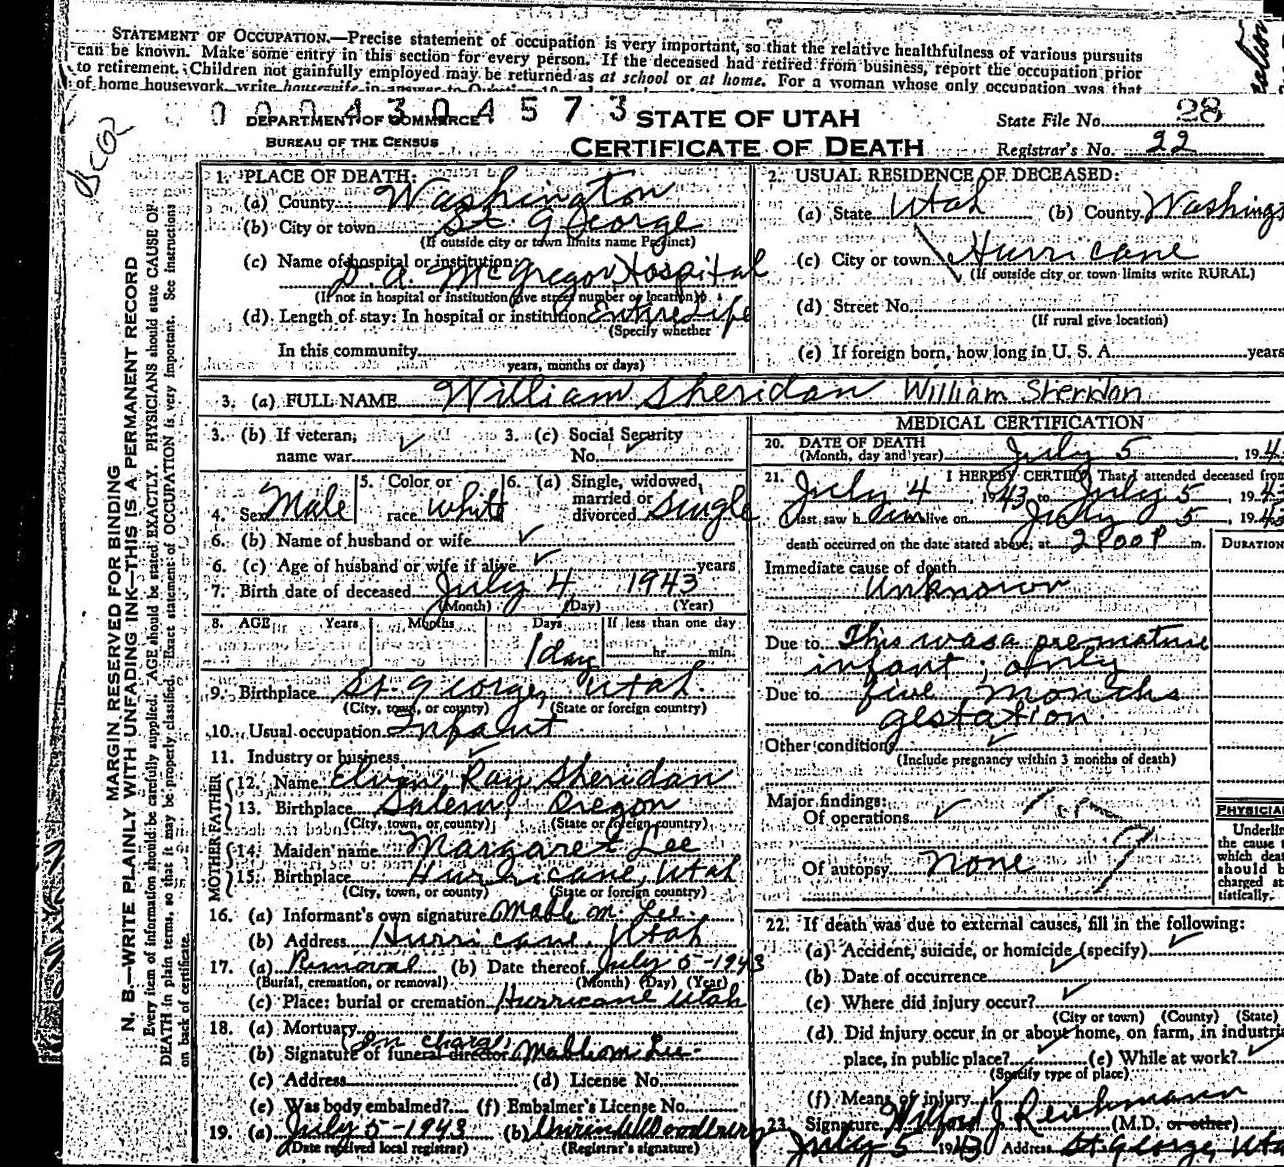 STATEMENT OF OCCUPATION.—Precise statement of occupation is very important, so that the relative healthfulness of various pursuits
can be known. Make some entry in this section for every person. If the deceased had retired from business, report the occupation prior
to retirement. Children not gainfully employed may be returned as at school or at home. For a woman whose only occupation was that
of home housework, write housewife in answer to Question 10
0004304573
DEPARTMENT OF COMMERCE
BUREAU OF THE CENSUS
STATE OF UTAH
CERTIFICATE OF DEATH
State File No. 28
Registrar's No. 22
MARGIN RESERVED FOR BINDING
N. B.—WRITE PLAINLY WITH UNFADING INK—THIS IS A PERMANENT RECORD
Every item of information should be carefully supplied. AGE should be stated EXACTLY. PHYSICIANS should state CAUSE OF
DEATH in plain terms, so that it may be properly classified. Exact statement of OCCUPATION is very important. See instructions
on back of certificate.
1. PLACE OF DEATH:
(a) County Washington
(b) City or town St. George
(If outside city or town limits name Precinct)
(c) Name of hospital or institution:
D. A. McGregor Hospital
(If not in hospital or institution give street number or location)
(d) Length of stay: In hospital or institution Entire Life
(Specify whether
In this community
years, months or days)
2. USUAL RESIDENCE OF DECEASED:
(a) State Utah (b) County Washing
(c) City or town Hurricane
(If outside city or town limits write RURAL)
(d) Street No.
(If rural give location)
(e) If foreign born, how long in U. S. A. years
3. (a) FULL NAME William Sheridan William Sheridan
3. (b) If veteran, name war
3. (c) Social Security No.
4. Sex Male
5. Color or race white
6. (a) Single, widowed, married or divorced single
6. (b) Name of husband or wife
6. (c) Age of husband or wife if alive years
7. Birth date of deceased July 4 1943
(Month) (Day) (Year)
8. AGE Years Months Days If less than one day
1 day hr. min.
9. Birthplace St. George, Utah
(City, town, or county) (State or foreign country)
10. Usual occupation Infant
11. Industry or business
FATHER
12. Name Elvin Ray Sheridan
13. Birthplace Salem, Oregon
(City, town, or county) (State or foreign country)
MOTHER
14. Maiden name Margaret Lee
15. Birthplace Hurricane, Utah
(City, town, or county) (State or foreign country)
16. (a) Informant's own signature Mable M. Lee
(b) Address Hurricane, Utah
17. (a) Removal (b) Date thereof July 5-1943
(Burial, cremation, or removal) (Month) (Day) (Year)
(c) Place: burial or cremation Hurricane Utah
18. (a) Mortuary
In charge
(b) Signature of funeral director Mable M Lee
(c) Address (d) License No.
(e) Was body embalmed? (f) Embalmer's License No.
19. (a) July 5-1943 (b) Woodbury
(Date received local registrar) (Registrar's signature)
MEDICAL CERTIFICATION
20. DATE OF DEATH
(Month, day and year) July 5, 194
21. I HEREBY CERTIFY That I attended deceased from
July 4 1943 to July 5, 194
last saw him alive on July 5, 194
death occurred on the date stated above, at 2 P00P m.
DURATION
Immediate cause of death
Unknown
Due to This was a premature
infant; only
Due to five months
gestation.
Other conditions
(Include pregnancy within 3 months of death)
Major findings:
Of operations
Of autopsy none
PHYSICIA
Underlin
the cause t
which dea
should b
charged st
tistically.
22. If death was due to external causes, fill in the following:
(a) Accident, suicide, or homicide (specify)
(b) Date of occurrence
(c) Where did injury occur?
(City or town) (County) (State)
(d) Did injury occur in or about home, on farm, in industri
place, in public place? (e) While at work?
(Specify type of place)
(f) Means of injury
23. Signature Wilford J. Reichmann (M.D. or other)
July 5 1943 Address St. George, Ut